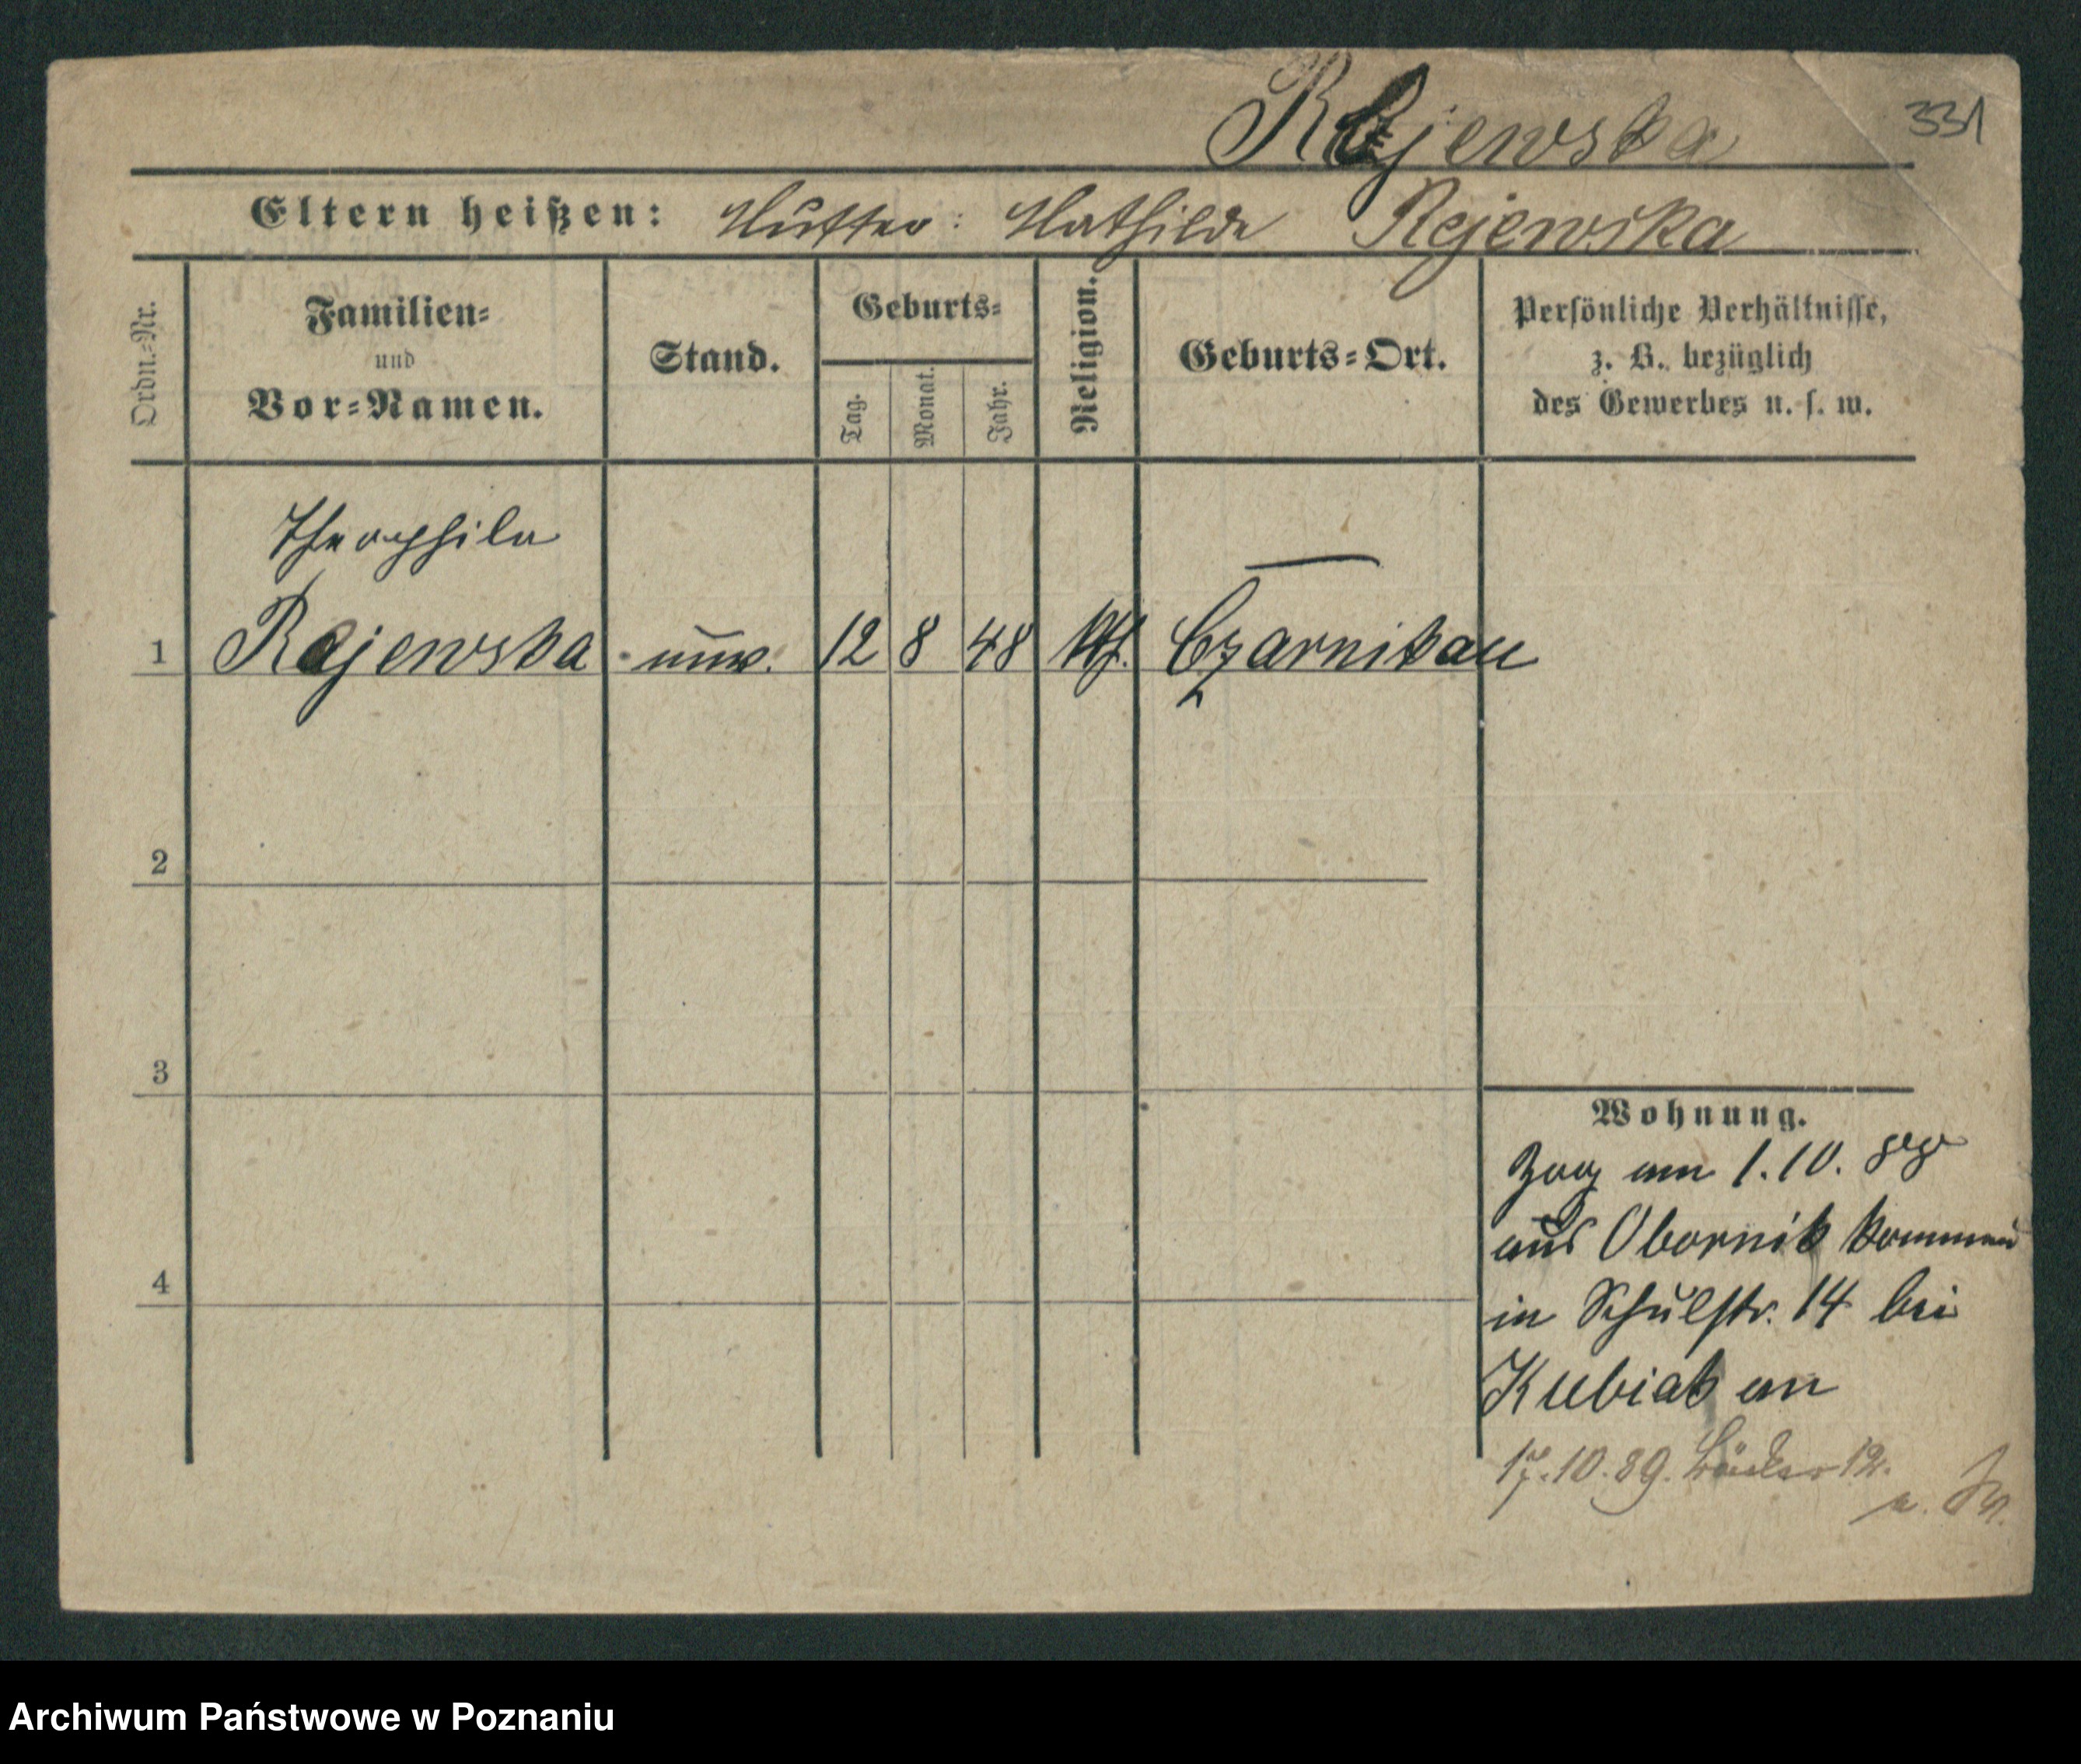 Rejewska
331
Eltern heißen: Mutter: Mathilde Rejewska
Ordn.-Nr.
Familien-
und
Vor-Namen.
Stand.
Geburts-
Tag.
Monat.
Jahr.
Religion.
Geburts-Ort.
Persönliche Verhältnisse,
z. B. bezüglich
des Gewerbes u. s. w.
Theophila
1 Rejewska unv. 12 8 48 Czarnikau
2
3
4
Wohnung.
Zog am 1.10.
aus Obornik kommend
in Schulstr. 14 bei
Kubiak an
17.10.89. 12.
Archiwum Państwowe w Poznaniu